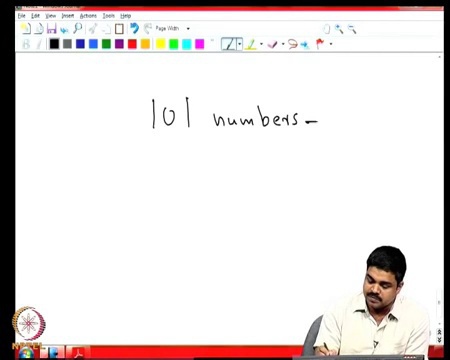 File Edit View Insert Actions Tools Help
Page Width
B
101 numbers -